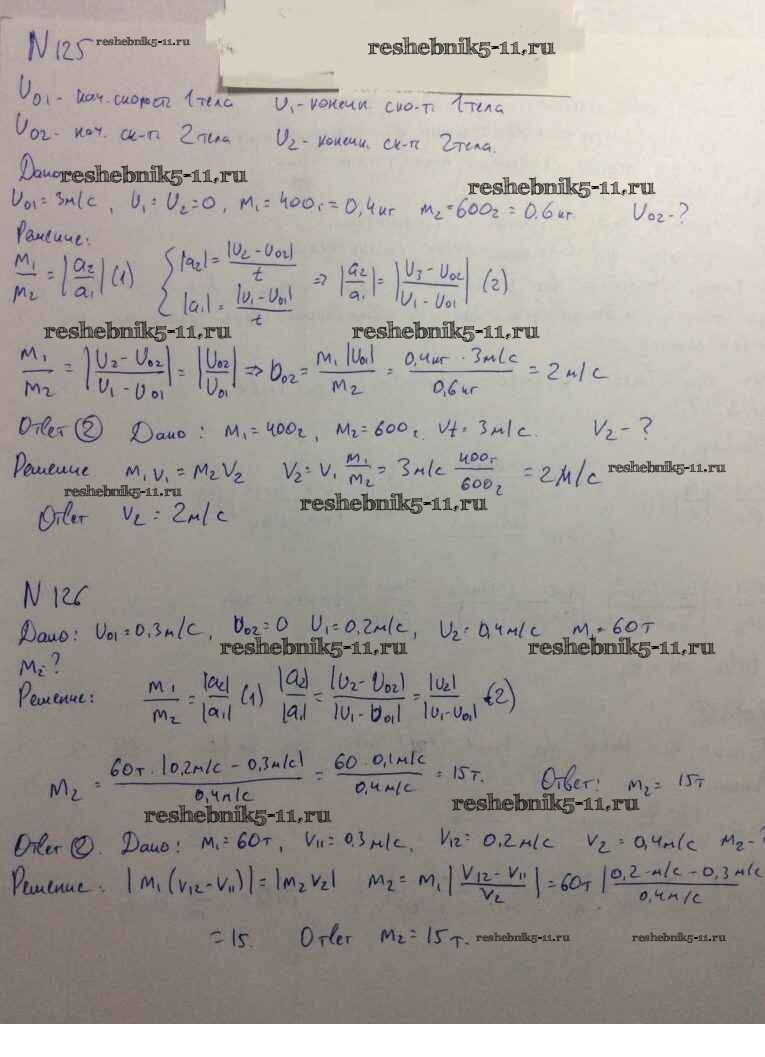 N 125 reshebnik5-11.ru reshebnik5-11.ru
υ01 - нач. скорость 1 тела υ1 - конечн. ско-ть 1 тела
υ02 - нач. ск-ть 2 тела υ2 - конечн. ск-ть 2 тела.
Дано reshebnik5-11.ru reshebnik5-11.ru
υ01 = 3м/с, υ1 = υ2 = 0, m1 = 400г = 0,4кг m2 = 600г = 0.6кг. υ02 - ?
Решение:
m1/m2 = |a2/a1| (1) { |a2| = |υ2 - υ02|/t |a1| = |υ1 - υ01|/t => |a2/a1| = |υ3 - υ02/υ1 - υ01| (2)
reshebnik5-11.ru reshebnik5-11.ru
m1/m2 = |υ2 - υ02/υ1 - υ01| = |υ02/υ01| => υ02 = m1|υ01|/m2 = 0,4кг · 3м/с/0,6кг = 2м/с
Ответ (2) Дано: m1 = 400г, m2 = 600г. Vt = 3м/с. V2 - ?
Решение m1V1 = m2V2 V2 = V1 m1/m2 = 3м/с 400г/600г = 2м/с reshebnik5-11.ru
reshebnik5-11.ru reshebnik5-11.ru
Ответ V2 = 2м/с
N 126
Дано: υ01 = 0,3м/с, υ02 = 0 υ1 = 0,2м/с, υ2 = 0,4м/с m1 = 60т
reshebnik5-11.ru reshebnik5-11.ru
m2 ?
Решение: m1/m2 = |a2|/|a1| (1) |a2|/|a1| = |υ2 - υ02|/|υ1 - υ01| = |υ2|/|υ1 - υ01| (2)
m2 = 60т · |0,2м/с - 0,3м/с|/0,4м/с = 60 · 0,1м/с/0,4м/с = 15т. Ответ: m2 = 15т
reshebnik5-11.ru reshebnik5-11.ru
Ответ (2). Дано: m1 = 60т, V11 = 0.3м/с, V12 = 0.2м/с V2 = 0,4м/с m2 - ?
Решение: |m1(V12 - V11)| = |m2V2| m2 = m1|V12 - V11/V2| = 60т |0,2м/с - 0,3м/с/0,4м/с
= 15. Ответ m2 = 15т. reshebnik5-11.ru reshebnik5-11.ru